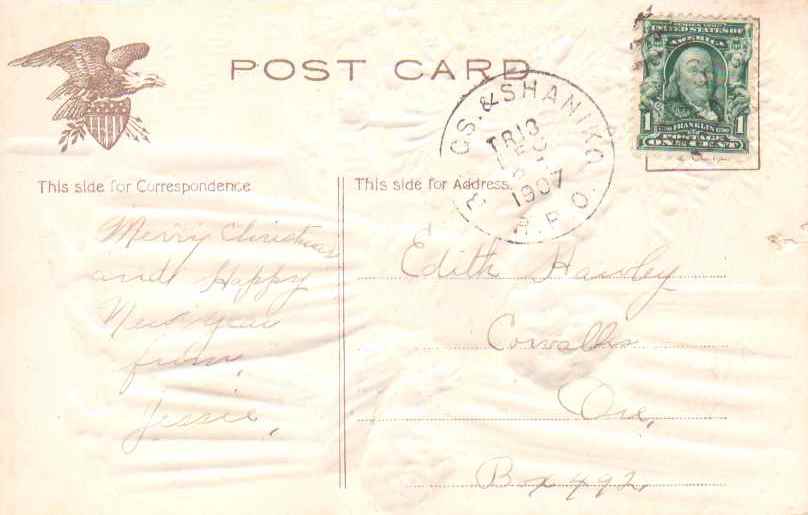 POST CARD
CS. & SHANIKO
TR13
DEC
1907
R.P.O.
UNITED STATES OF
AMERICA
FRANKLIN
1 1
POSTAGE
ONE CENT
This side for Correspondence
This side for Address.
Merry Christmas
and Happy
New Year
from
Jessie.
Edith Hawley
Corvallis
Ore,
Box 492,